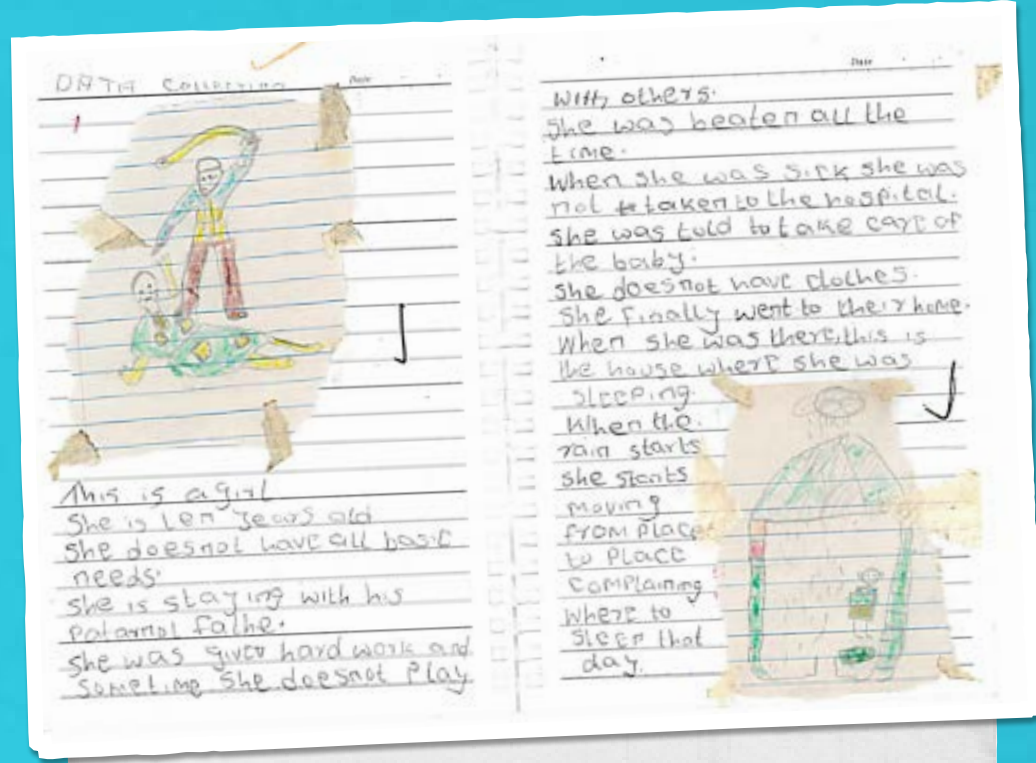 DATA Collection
Date
1
This is a girl
She is ten years old
She doesnot have all basic
needs.
She is staying with his
patarnol fathe.
She was given hard work and
Sometime She doesnot Play
Date
With others.
She was beaten all the
time.
When she was sick she was
not taken to the hospital.
She was told to take care of
the baby.
She doesnot have clothes.
She Finally went to their home.
When she was there, this is
the house where she was
Sleeping.
When the
rain starts
she starts
moving
from place
to place
complaining
where to
sleep that
day.